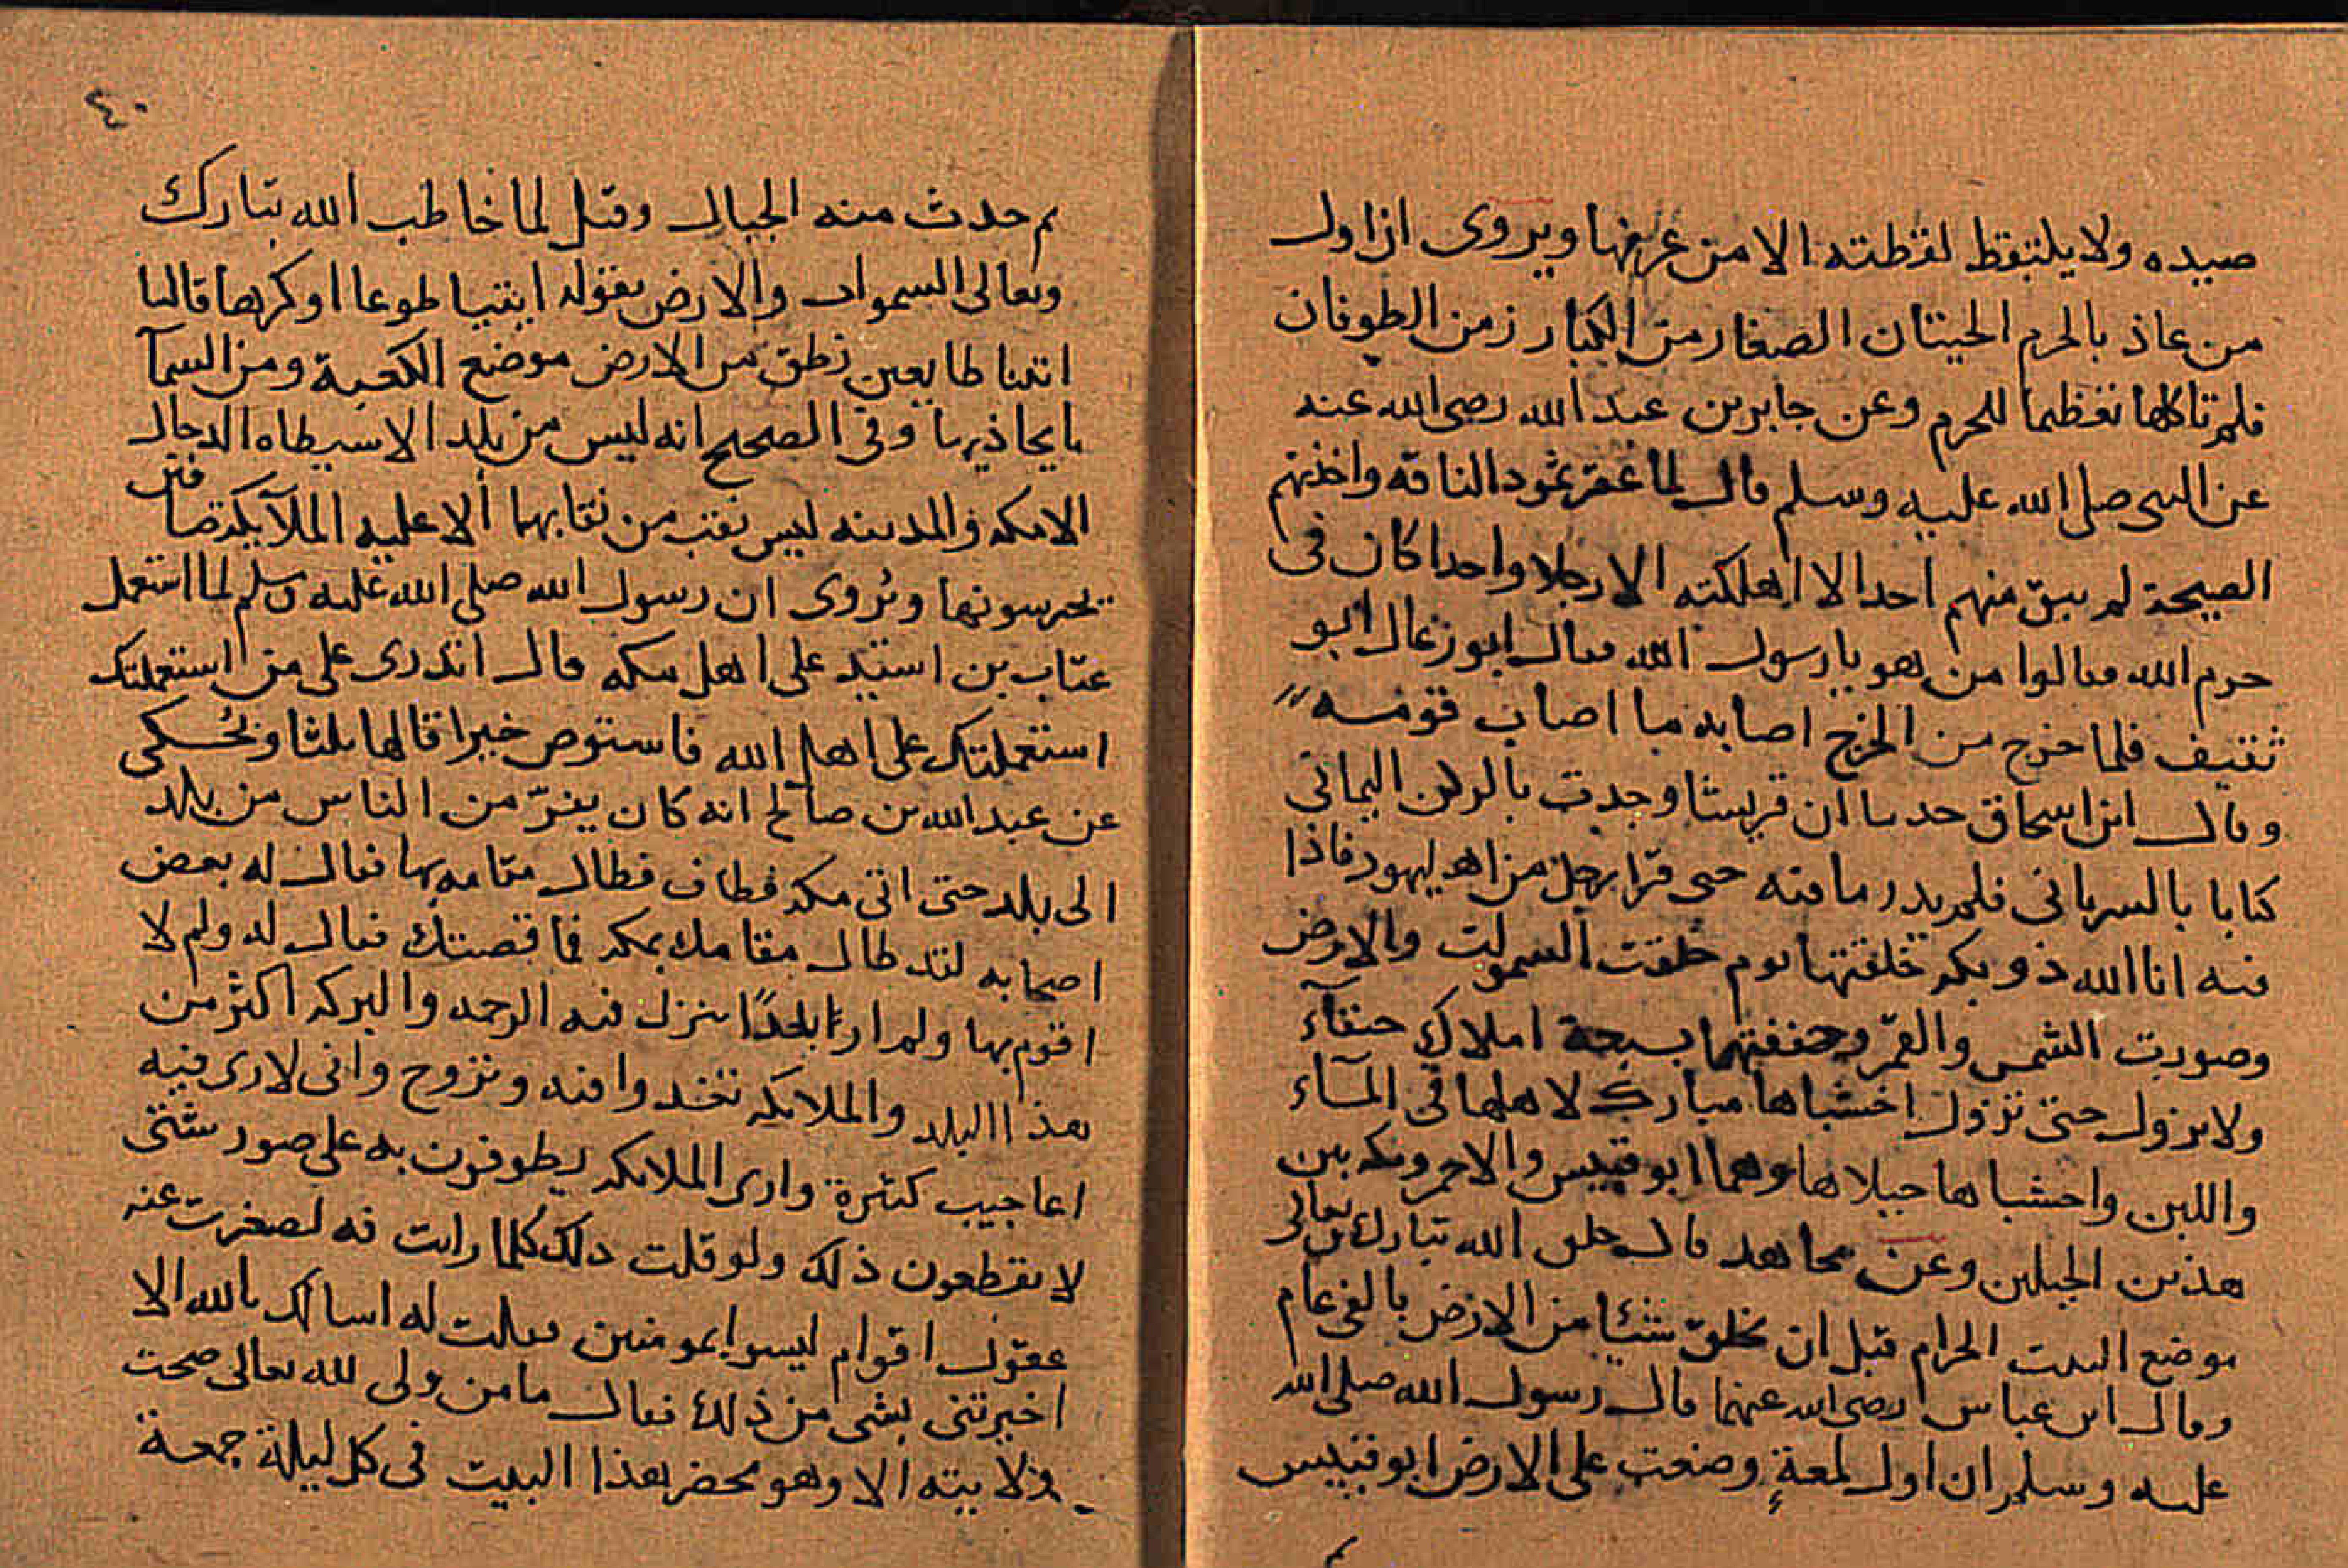 صيده ولا يلتقط لقطته الا من عرفها ويروى ان اول
من عاذ بالحرم الحيتان الصغار من الكبار زمن الطوفان
فلم تاكلها تعظيما للحرم وعن جابر بن عبد الله رضى الله عنه
عن النبى صلى الله عليه وسلم قال لما عقر ثمود الناقه واخذتهم
الصيحة لم يبق منهم احد الا اهلكته الا رجلا واحدا كان فى
حرم الله فقالوا من هو يا رسول الله فقال ابو رغال ابو
ثقيف فلما خرج من الحرم اصابه ما اصاب قومه
وقال ابن اسحاق حدثنا ان قريشا وجدت بالركن اليمانى
كتابا بالسريانى فلم يدر ما فيه حتى قرا رجل من اهل يهود فاذا
فيه انا الله ذو بكه خلقتها يوم خلقت السموات والارض
وصورت الشمس والقمر وحففتهما بسبعة املاك حنفآء
ولا تزول حتى تزول اخشباها مبارك لاهلها فى المآء
واللبن واخشباها جبلاها وهما ابو قبيس والاحمر ومكه بين
هذين الجبلين وعن مجاهد قال خلق الله تبارك وتعالى
موضع البيت الحرام قبل ان يخلق شيئا من الارض بالفى عام
وقال ابن عباس رضى الله عنهما قال رسول الله صلى الله
عليه وسلم ان اول لمعة وضعت على الارض ابو قبيس
٤٠
ثم حدث منه الجبال وقيل لما خاطب الله تبارك
وتعالى السموات والارض بقوله ايتيا طوعا او كرها قالتا
اتينا طايعين نطق من الارض موضع الكعبة ومن السمآ
ما يحاذيها وفى الصحيح انه ليس من بلد الا سيطاه الدجال
الا مكه والمدينه ليس نقب من نقابها الا عليه الملآيكة صافين
يحرسونها ويروى ان رسول الله صلى الله عليه وسلم لما استعمل
عتاب بن اسيد على اهل مكه قال اتدرى على من استعملتك
استعملتك على اهل الله فاستوص خيرا قالها ثلثا ويحكى
عن عبد الله بن صالح انه كان يفر من الناس من بلد
الى بلد حتى اتى مكه فطاف فطال مقامه بها فقال له بعض
اصحابه لقد طال مقامك بمكه فما قصتك فقال له ولم لا
اقوم بها ولم ار بلدا ينزل فيه الرحمه والبركه اكثر من
هذا البلد والملايكه تغدوا فيه وتروح وانى لارى فيه
اعاجيب كثيرة وارى الملايكه يطوفون به على صور شتى
لا يقطعون ذلك ولو قلت ذلك كلما رايت فيه لصغرت عنه
عقول اقوام ليسوا بمومنين فقلت له اسالك بالله الا
اخبرتنى بشى من ذلك فقال ما من ولى لله تعالى صحت
ولايته الا وهو يحضر هذا البيت فى كل ليلة جمعة